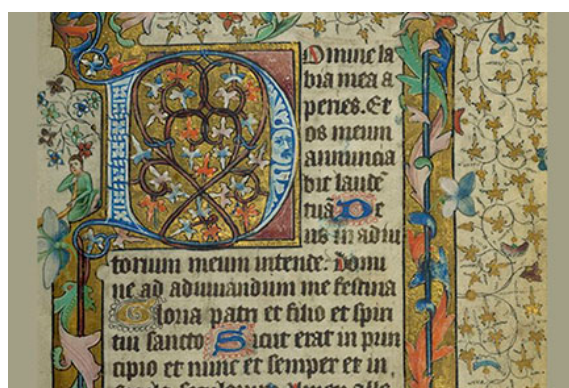 Domine la
bia mea a
peries. Et
os meum
annuncia
bit laudē
tuā De
us in adiu
torium meum intende. Domi
ne ad adiuuandum me festina
Gloria patri et filio et spiri
tui sancto Sicut erat in prin
cipio et nunc et semper et in